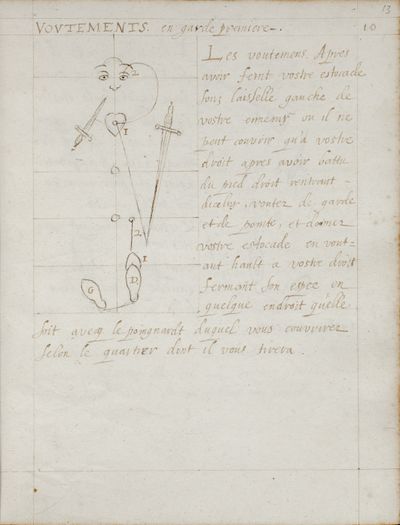 13
VOVTEMENTS. en garde premiere. 10
Les voutemens. Apres
avoir ferut vostre estocade
souz laisselle gauche de
vostre ennemy ou il ne
peut couvrir qu'a vostre
droit apres avoir battu
du pied droit rentrant
voutez de garde
et de pointe, et donnez
vostre estocade en vout-
ant hault a vostre droit
fermant son espee en
quelque endroit qu'elle
soit avecq le poingnardt duquel vous couvrirez
selon le quartier dont il vous tirera.
1
2
1
G
D